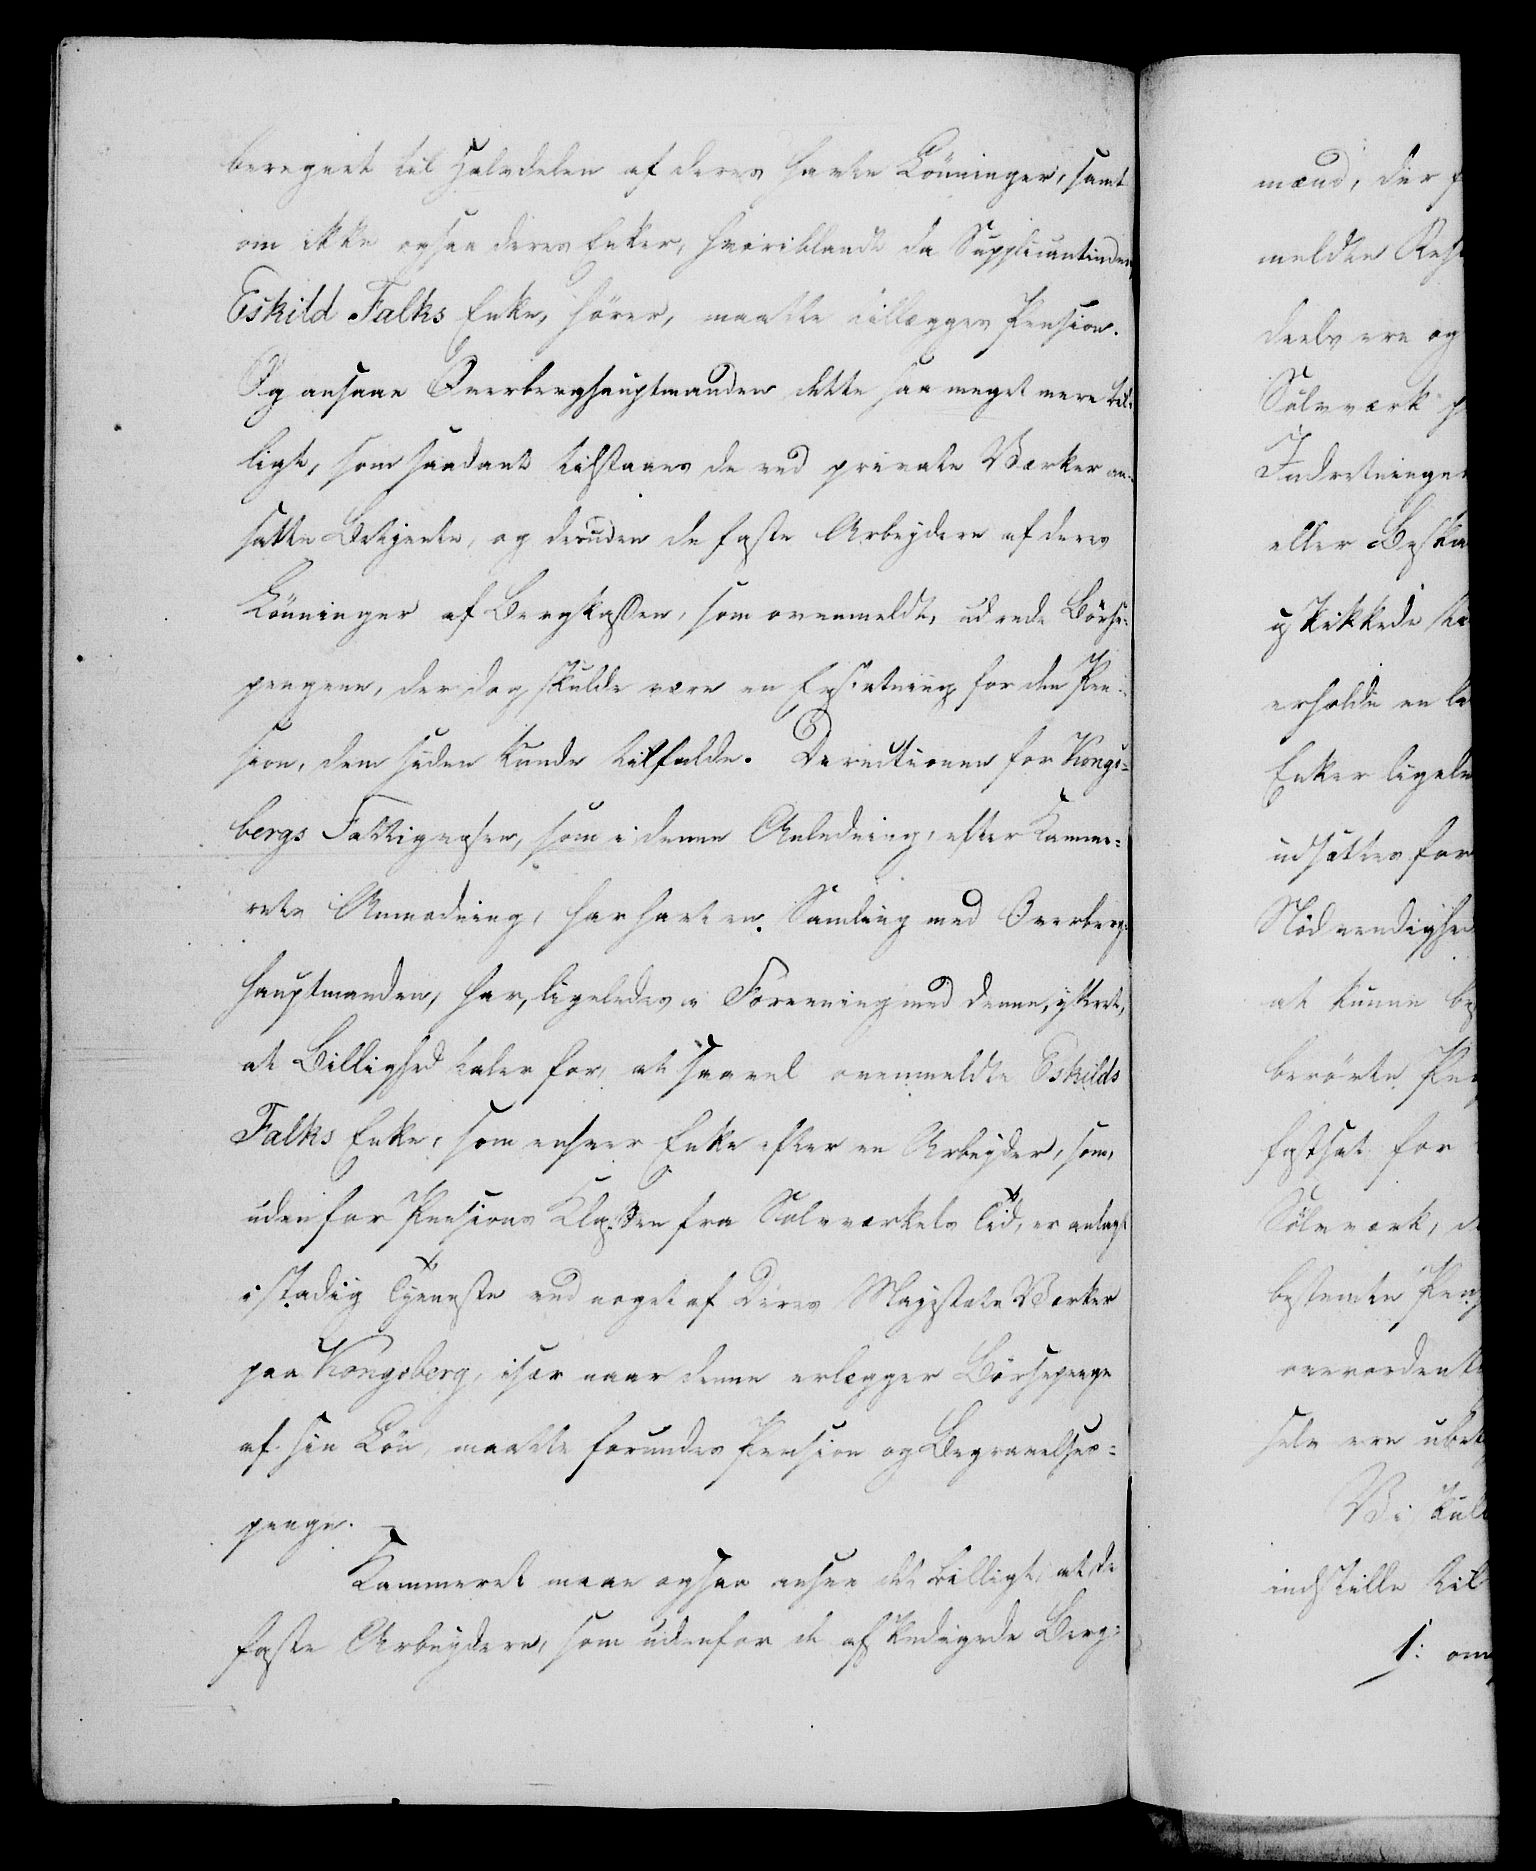 beregnet til Halvdelen af deres havte Lönninger, samt
om ikke ogsaa deres Enker, hvoriblandt da Supplicantinden
Eskild Falks Enke, hörer, maatte tillægges Pension.
Og ansaae Overberghauptmanden dette saa meget mere bil-
ligt, som saadant tilstaaes de ved private Værker an-
satte Betjente, og desuden de faste Arbeydere af deres
Lönninger af Bergkassen, som ovenmeldt, udrede Börse-
pengene, der dog skulde være en Erstatning for den Pen-
sion, dem siden kunde tilfalde. Directionen for Kongs-
bergs Fattigvæsen, som i denne Anledning, efter Kamme-
rets Anmodning, har havt en Samling med Overberg-
hauptmanden, har, ligeledes i Forening med denne, yttret,
at Billighed taler for, at saavel ovenmeldte Eskilds
Falks Enke, som enhver Enke efter en Arbeyder, som,
uden for Pensions Klassen fra Sølvværkets Tid, er antaget
i stadig Tjeneste ved noget af Deres Majestæts Værker
paa Kongsberg, især naar denne erlægger Börsepenge
af sin Lön, maatte forundes Pension og Begravelses-
penge.
Kammeret maae ogsaa ansee det billigt, at de
faste Arbeydere, som udenfor de afskedigede Berg-
mænd, der
meldte
deels ere og
Sølvværk
Indretninger
eller
erholde en
Enker ligele
udsættes for
Nödvendighed
at kunne
berörte
fastsat for
Sölvværk,
bestemte
overordent
selv ere
Vi skul
indstille til
1: om